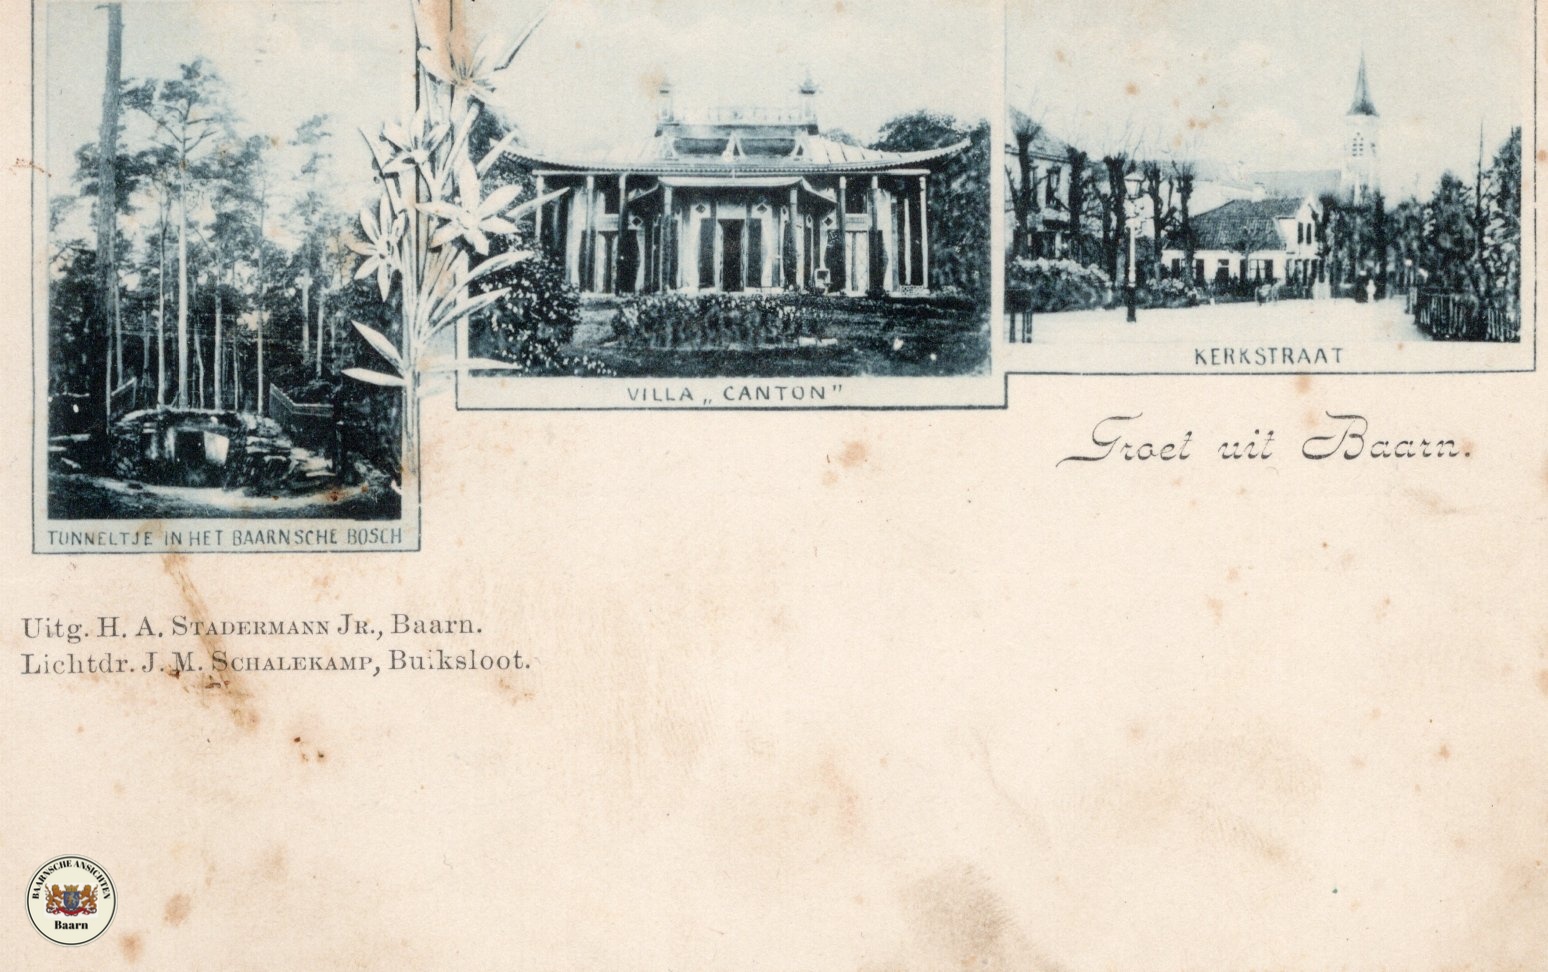 TUNNELTJE IN HET BAARNSCHE BOSCH
VILLA „CANTON”
KERKSTRAAT
Groet uit Baarn.
Uitg. H. A. STADERMANN JR., Baarn.
Lichtdr. J. M. SCHALEKAMP, Buiksloot.
BAARNSCHE ANSICHTEN
Baarn